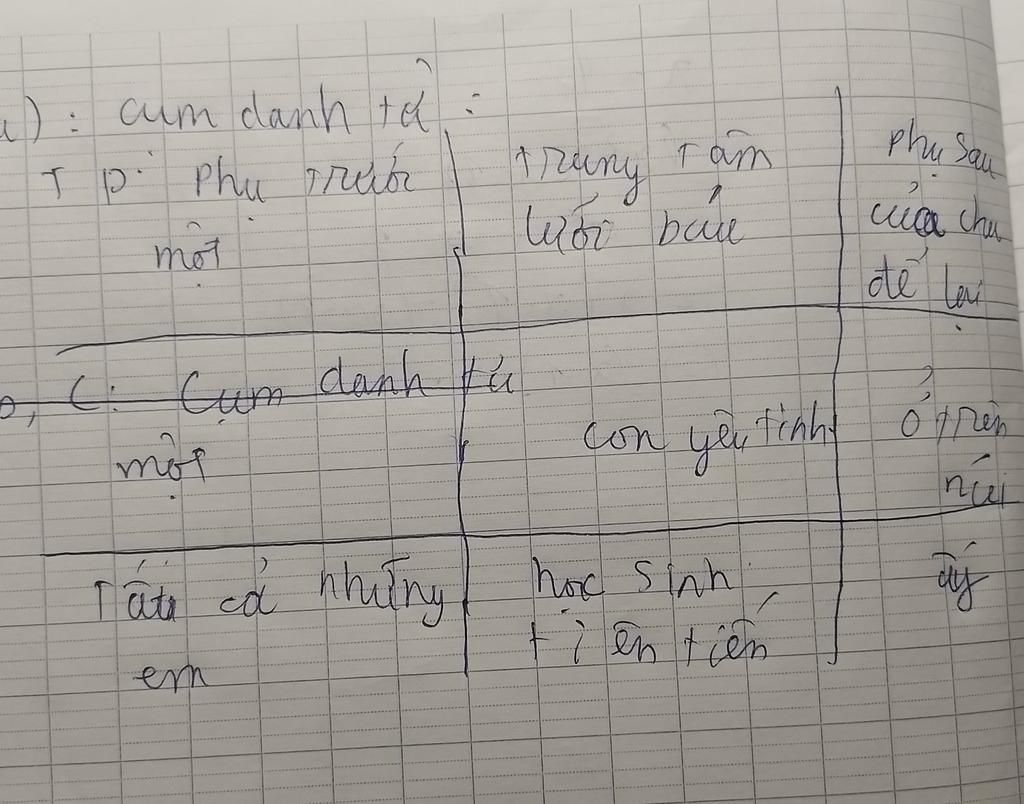 a): cụm danh từ:
TP: phụ trước
một
trung tâm
lưỡi búa
phụ sau
của cha
để lại
b, C: Cụm danh từ
một
con yêu tinh
ở trên
núi
Tất cả những
em
học sinh
tiên tiến
ấy